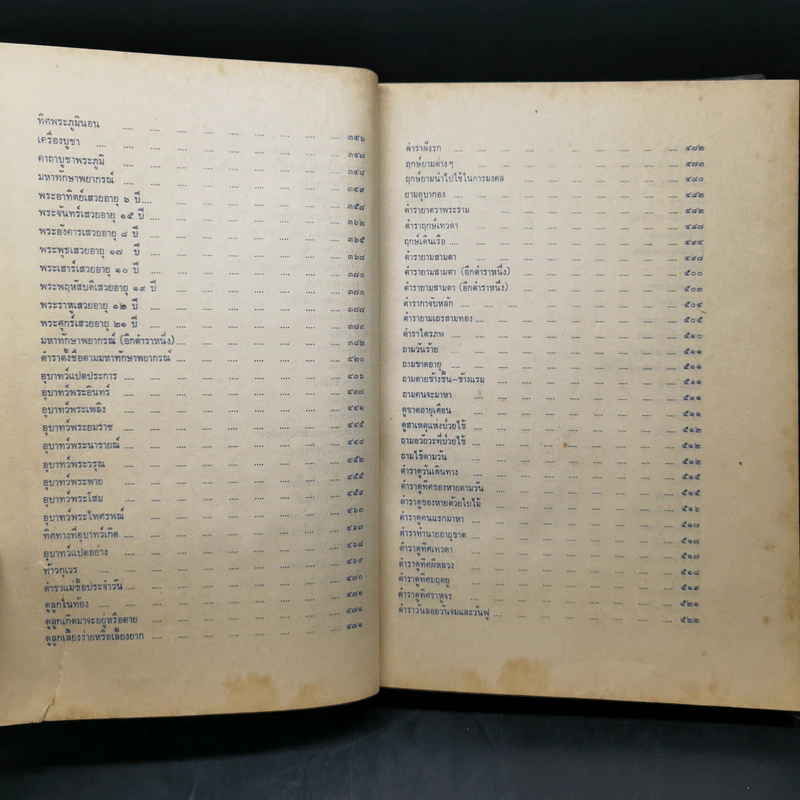 ทิศพระภูมินอน .... .... .... .... .... .... .... .... ๓๔๖
เครื่องบูชา .... .... .... .... .... .... .... .... ๓๔๗
คาถาบูชาพระภูมิ .... .... .... .... .... .... .... ๓๔๘
มหาทักษาพยากรณ์ .... .... .... .... .... .... .... ๓๔๙
พระอาทิตย์เสวยอายุ ๖ ปี .... .... .... .... .... .... ๓๕๗
พระจันทร์เสวยอายุ ๑๕ ปี .... .... .... .... .... .... ๓๖๒
พระอังคารเสวยอายุ ๘ ปี .... .... .... .... .... .... ๓๖๕
พระพุธเสวยอายุ ๑๗ ปี .... .... .... .... .... .... ๓๖๗
พระเสาร์เสวยอายุ ๑๐ ปี .... .... .... .... .... .... ๓๗๐
พระพฤหัสบดีเสวยอายุ ๑๙ ปี .... .... .... .... .... ๓๗๓
พระราหูเสวยอายุ ๑๒ ปี .... .... .... .... .... .... ๓๗๗
พระศุกร์เสวยอายุ ๒๑ ปี .... .... .... .... .... .... ๓๗๙
มหาทักษาพยากรณ์ (อีกตำราหนึ่ง) .... .... .... .... .... ๓๘๒
ตำราตั้งชื่อตามมหาทักษาพยากรณ์ .... .... .... .... .... ๔๒๐
อุบาทว์แปดประการ .... .... .... .... .... .... .... ๔๓๖
อุบาทว์พระอินทร์ .... .... .... .... .... .... .... ๔๓๗
อุบาทว์พระเพลิง .... .... .... .... .... .... .... ๔๔๑
อุบาทว์พระยมราช .... .... .... .... .... .... .... ๔๔๕
อุบาทว์พระนารายณ์ .... .... .... .... .... .... .... ๔๔๘
อุบาทว์พระวรุณ .... .... .... .... .... .... .... ๔๕๒
อุบาทว์พระพาย .... .... .... .... .... .... .... ๔๕๕
อุบาทว์พระโสม .... .... .... .... .... .... .... ๔๕๙
อุบาทว์พระไพศรพณ์ .... .... .... .... .... .... .... ๔๖๐
ทิศทางที่อุบาทว์เกิด .... .... .... .... .... .... .... ๔๖๗
อุบาทว์แปดอย่าง .... .... .... .... .... .... .... ๔๖๘
ท้าวกุเวร .... .... .... .... .... .... .... .... ๔๖๙
ตำราแม่ซื้อประจำวัน .... .... .... .... .... .... .... ๔๗๐
ดูลูกในท้อง .... .... .... .... .... .... .... .... ๔๗๑
ดูลูกเกิดมาจะอยู่หรือตาย .... .... .... .... .... .... ๔๗๑
ดูลูกเลี้ยงง่ายหรือเลี้ยงยาก .... .... .... .... .... .... ๔๗๑
ตำราฝังรก .... .... .... .... .... .... .... .... ๔๗๒
ฤกษ์ยามต่างๆ .... .... .... .... .... .... .... .... ๔๗๓
ฤกษ์ยามนำไปใช้ในการมงคล .... .... .... .... .... .... ๔๘๐
ยามอุบากอง .... .... .... .... .... .... .... .... ๔๘๒
ตำรายาตราพระราม .... .... .... .... .... .... .... ๔๘๒
ตำราฤกษ์เทวดา .... .... .... .... .... .... .... ๔๘๓
ฤกษ์เดินเรือ .... .... .... .... .... .... .... .... ๔๙๔
ตำรายามสามตา .... .... .... .... .... .... .... ๔๙๘
ตำรายามสามตา (อีกตำราหนึ่ง) .... .... .... .... .... ๕๐๐
ตำรายามสามตา (อีกตำราหนึ่ง) .... .... .... .... .... ๕๐๓
ตำรากาจับหลัก .... .... .... .... .... .... .... ๕๐๔
ตำรายามเถรสามทอง .... .... .... .... .... .... .... ๕๐๕
ตำราไตรภพ .... .... .... .... .... .... .... .... ๕๐๗
ถามวันร้าย .... .... .... .... .... .... .... .... ๕๑๑
ถามขาดอายุ .... .... .... .... .... .... .... .... ๕๑๑
ถามตายข้างขึ้น—ข้างแรม .... .... .... .... .... .... ๕๑๑
ถามคนจะมาหา .... .... .... .... .... .... .... ๕๑๑
ดูขาดอายุเดือน .... .... .... .... .... .... .... ๕๑๑
ดูสาเหตุแห่งป่วยไข้ .... .... .... .... .... .... .... ๕๑๑
ถามอวัยวะที่ป่วยไข้ .... .... .... .... .... .... .... ๕๑๒
ถามไข้ตามวัน .... .... .... .... .... .... .... ๕๑๒
ตำราดูวันเดินทาง .... .... .... .... .... .... .... ๕๑๒
ตำราดูทิศของหายตามวัน .... .... .... .... .... .... ๕๑๕
ตำราดูของหายด้วยใบไม้ .... .... .... .... .... .... ๕๑๖
ตำราดูคนแรกมาหา .... .... .... .... .... .... .... ๕๑๗
ตำราทำนายอายุขาด .... .... .... .... .... .... .... ๕๑๗
ตำราดูทิศเทวดา .... .... .... .... .... .... .... ๕๑๗
ตำราดูทิศผีหลวง .... .... .... .... .... .... .... ๕๑๘
ตำราดูทิศมฤตยู .... .... .... .... .... .... .... ๕๑๙
ตำราดูทิศราหูจร .... .... .... .... .... .... .... ๕๒๑
ตำราวันลอยวันจมและวันฟู .... .... .... .... .... .... ๕๒๒